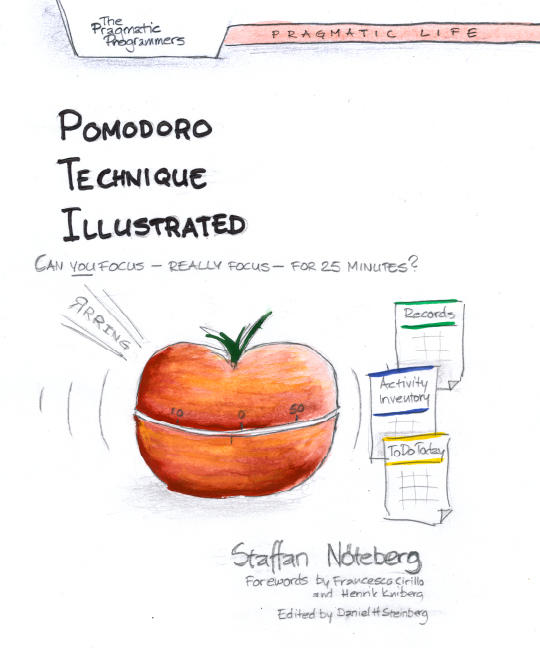 The
Pragmatic
Programmers
PRAGMATIC LIFE
POMODORO
TECHNIQUE
ILLUSTRATED
CAN YOU FOCUS — REALLY FOCUS — FOR 25 MINUTES?
ЯRRING
Records
Activity
Inventory
ToDo Today
10 0 50
Staffan Nöteberg
Forewords by Francesco Cirillo
and Henrik Kniberg
Edited by Daniel H Steinberg